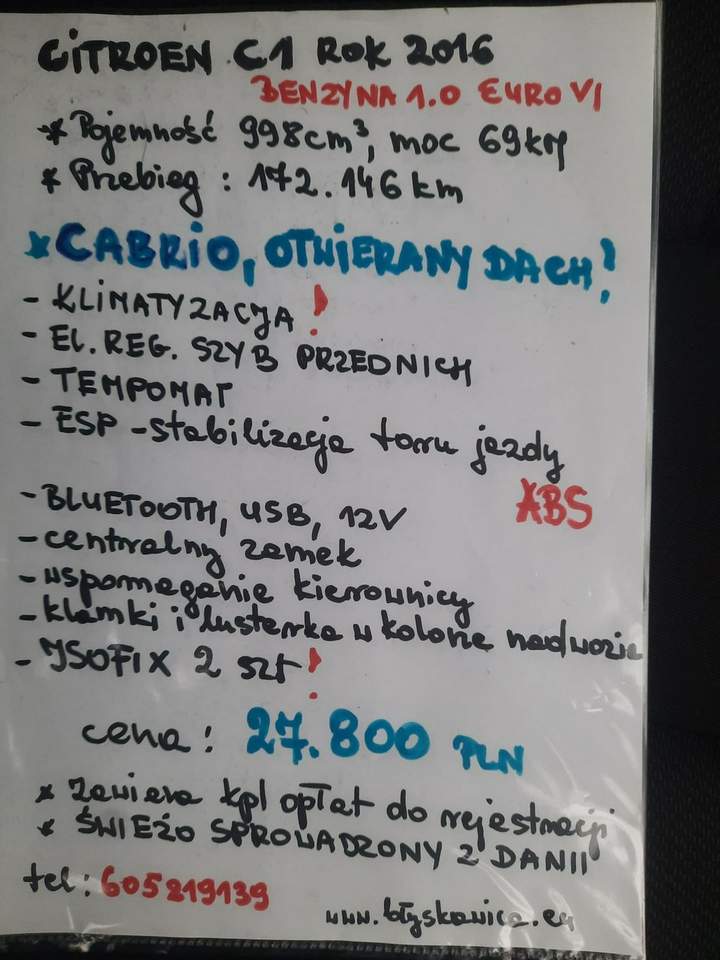 CITROEN C1 ROK 2016
BENZYNA 1.0 EURO VI
* Pojemność 998cm³, moc 69KM
* Przebieg : 172.146 km
* CABRIO, OTWIERANY DACH!
- KLIMATYZACJA !
- EL. REG. SZYB PRZEDNICH
- TEMPOMAT
- ESP - stabilizacja toru jazdy
ABS
- BLUETOOTH, USB, 12V
- centralny zamek
- wspomaganie kierownicy
- klamki i lusterka w kolorze nadwozia
- ISOFIX 2 szt !
cena : 27.800 PLN
* Zawiera kpl opłat do rejestracji
* ŚWIEŻO SPROWADZONY Z DANII
tel : 605219139
www.błyskawica.eu